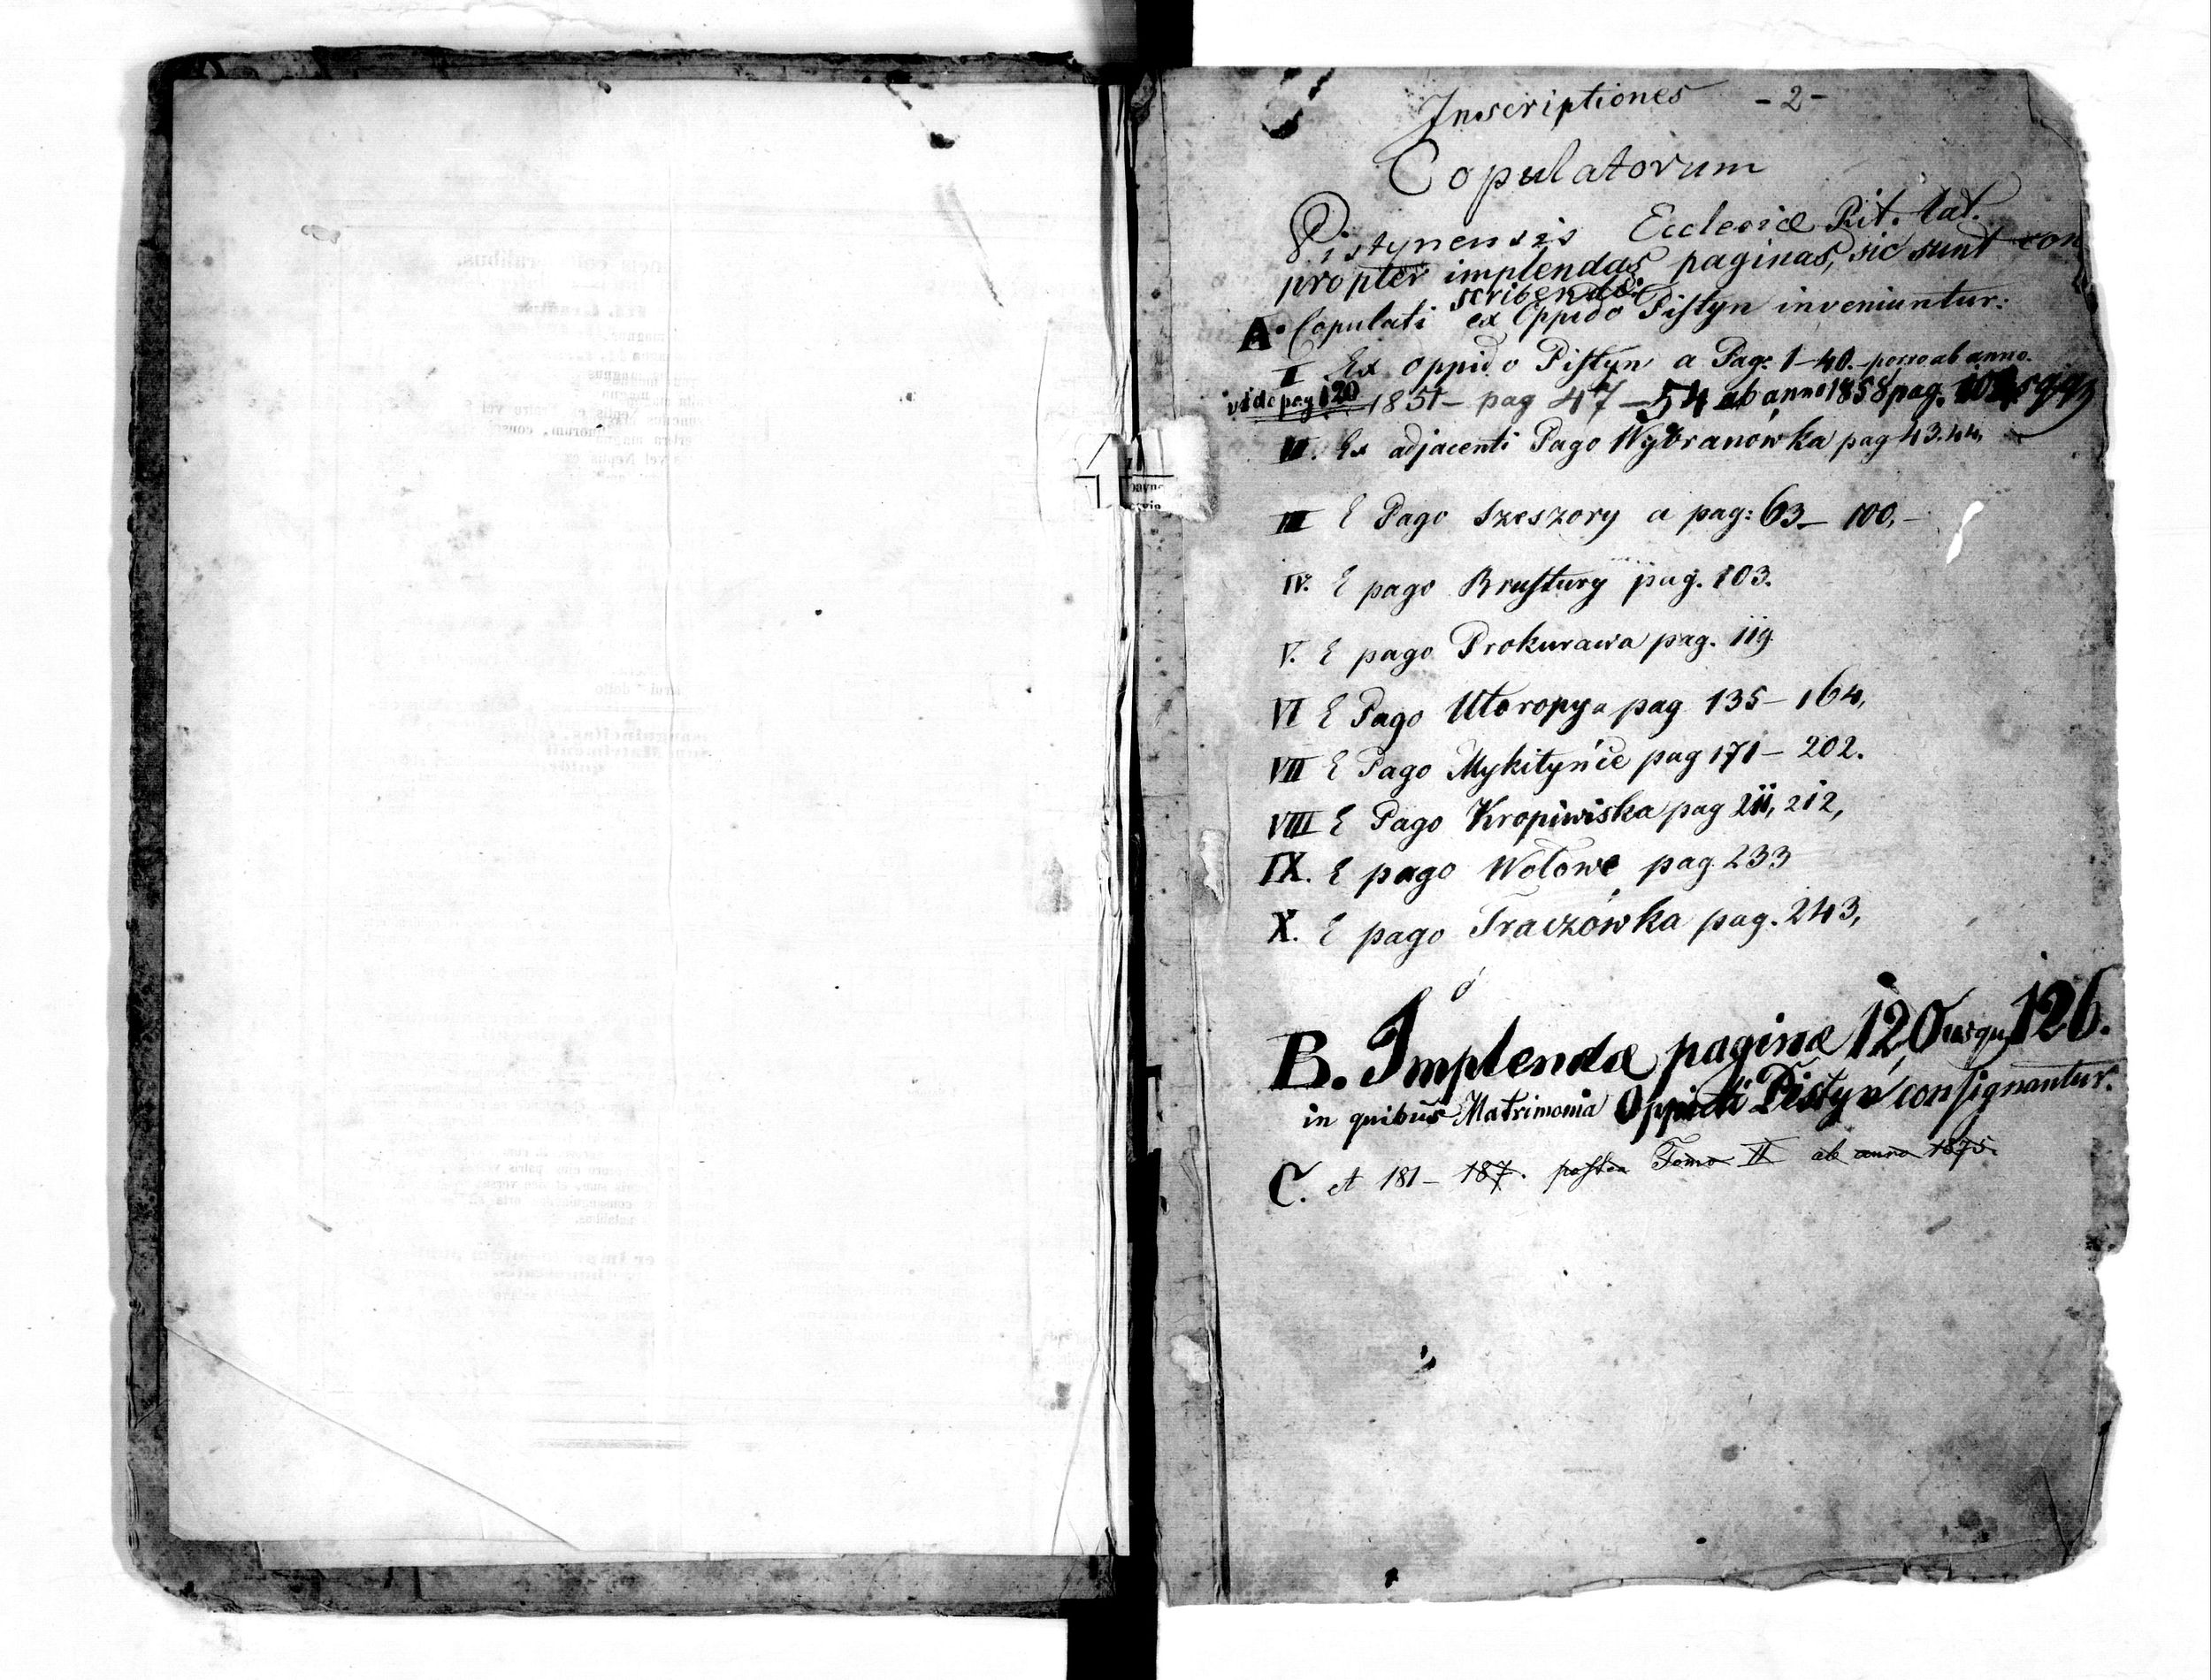 Inscriptiones - 2 -
Copulatorum
Pistynensis Ecclesiæ Rit. lat.
propter implendas paginas, sic sunt con
scribendæ:
A. Copulati ex Oppido Pistyn inveniuntur:
I Ex oppido Pistyn a Pag: 1-40. porro ab anno.
vide pag 120 1851 - pag 47 - 54 ab anno 1858 pag.
II. Ex adjacenti Pago Wybranówka pag 43.44,
III E Pago Szeszory a pag: 63 - 100, -
IV. E pago Brustury pag. 103.
V. E pago Prokurawa pag. 119
VI E Pago Utoropy a pag 135 - 164,
VII E Pago Mykityńce pag 171 - 202.
VIII E Pago Kropiwiska pag 211, 212,
IX. E pago Wołowe pag 233
X. E pago Traczówka pag. 243,
B. Implendæ paginæ 120 usque 126.
in quibus Matrimonia Oppidi Pistyń consignantur.
C. et 181 - 187. postea Tomo II ab anno 1875.